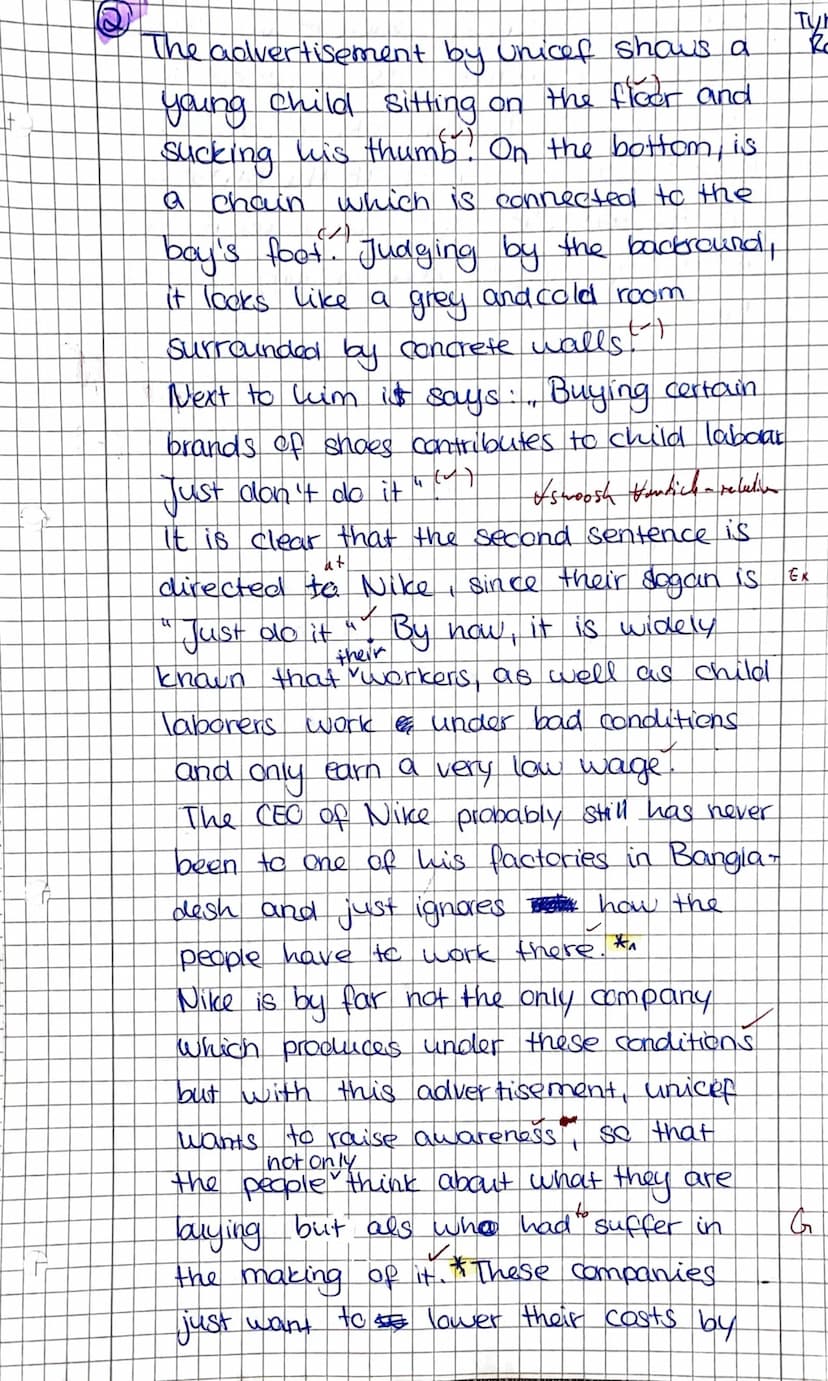 ② Tyr
The advertisement by unicef shows a
young child sitting on the floor and
sucking his thumb. On the bottom, is
a chain which is connected to the
boy's foot. Judging by the backround,
it looks like a grey and cold room
surrounded by concrete walls.
Next to him it says: „Buying certain
brands of shoes contributes to child labour
Just don't do it".
swoosh
It is clear that the second sentence is
at
directed to Nike, since their slogan is Ex
"Just do it". By now, it is widely
their
known that workers, as well as child
laborers work under bad conditions
and only earn a very low wage.
The CEO of Nike probably still has never
been to one of his factories in Bangla-
desh and just ignores how the
people have to work there. *1
Nike is by far not the only company
which produces under these conditions
but with this advertisement, unicef
wants to raise awareness, so that
not only
the people think about what they are
to
buying but als who had suffer in G
the making of it. * These companies
just want to lower their costs by